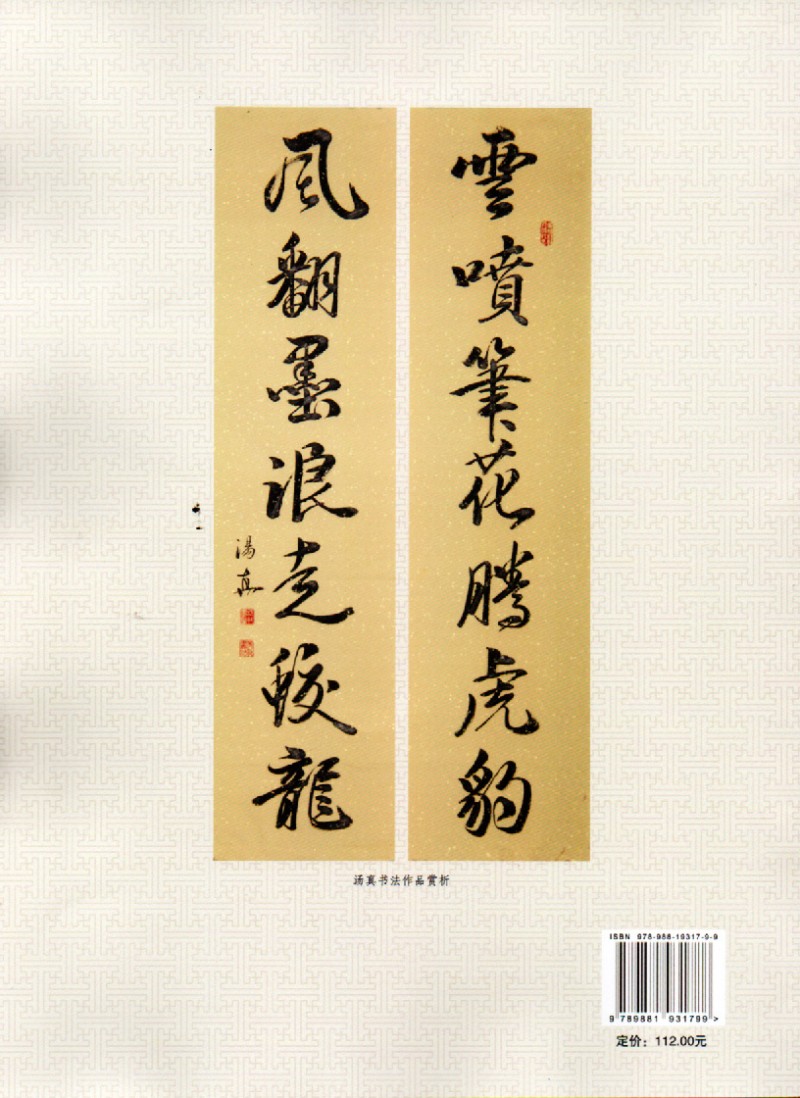 雲噴筆花騰虎豹
風翻墨浪走蛟龍
湯真
汤真书法作品赏析
ISBN 978-988-19317-9-9
9 789881 931799 >
定价：112.00元